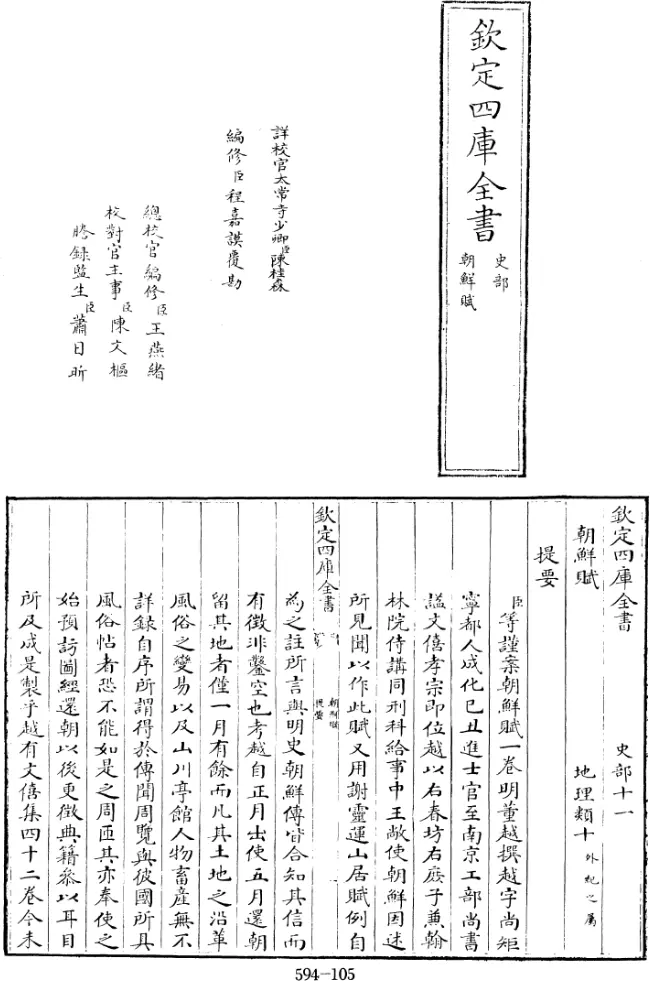 欽定四庫全書
史部
朝鮮賦
詳校官太常寺少卿臣陳桂森
編修臣程嘉謨覆勘
總校官編修臣王燕緒
校對官主事臣陳文樞
謄錄監生臣蕭日昕
欽定四庫全書
史部十一
朝鮮賦
地理類十外紀之屬
提要
臣等謹案朝鮮賦一卷明董越撰越字尚矩
寧都人成化己丑進士官至南京工部尚書
諡文僖孝宗即位越以右春坊右庶子兼翰
林院侍講同刑科給事中王敞使朝鮮因述
所見聞以作此賦又用謝靈運山居賦例自
欽定四庫全書
朝鮮賦
提要
為之註所言與明史朝鮮傳皆合知其信而
有徵非鑿空也考越自正月出使五月還朝
留其地者僅一月有餘而凡其土地之沿革
風俗之變易以及山川亭館人物畜產無不
詳錄自序所謂得於傳聞周覽與彼國所具
風俗帖者恐不能如是之周匝其亦奉使之
始預訪圖經還朝以後更徵典籍參以耳目
所及成是製乎越有文僖集四十二卷今未
594-105